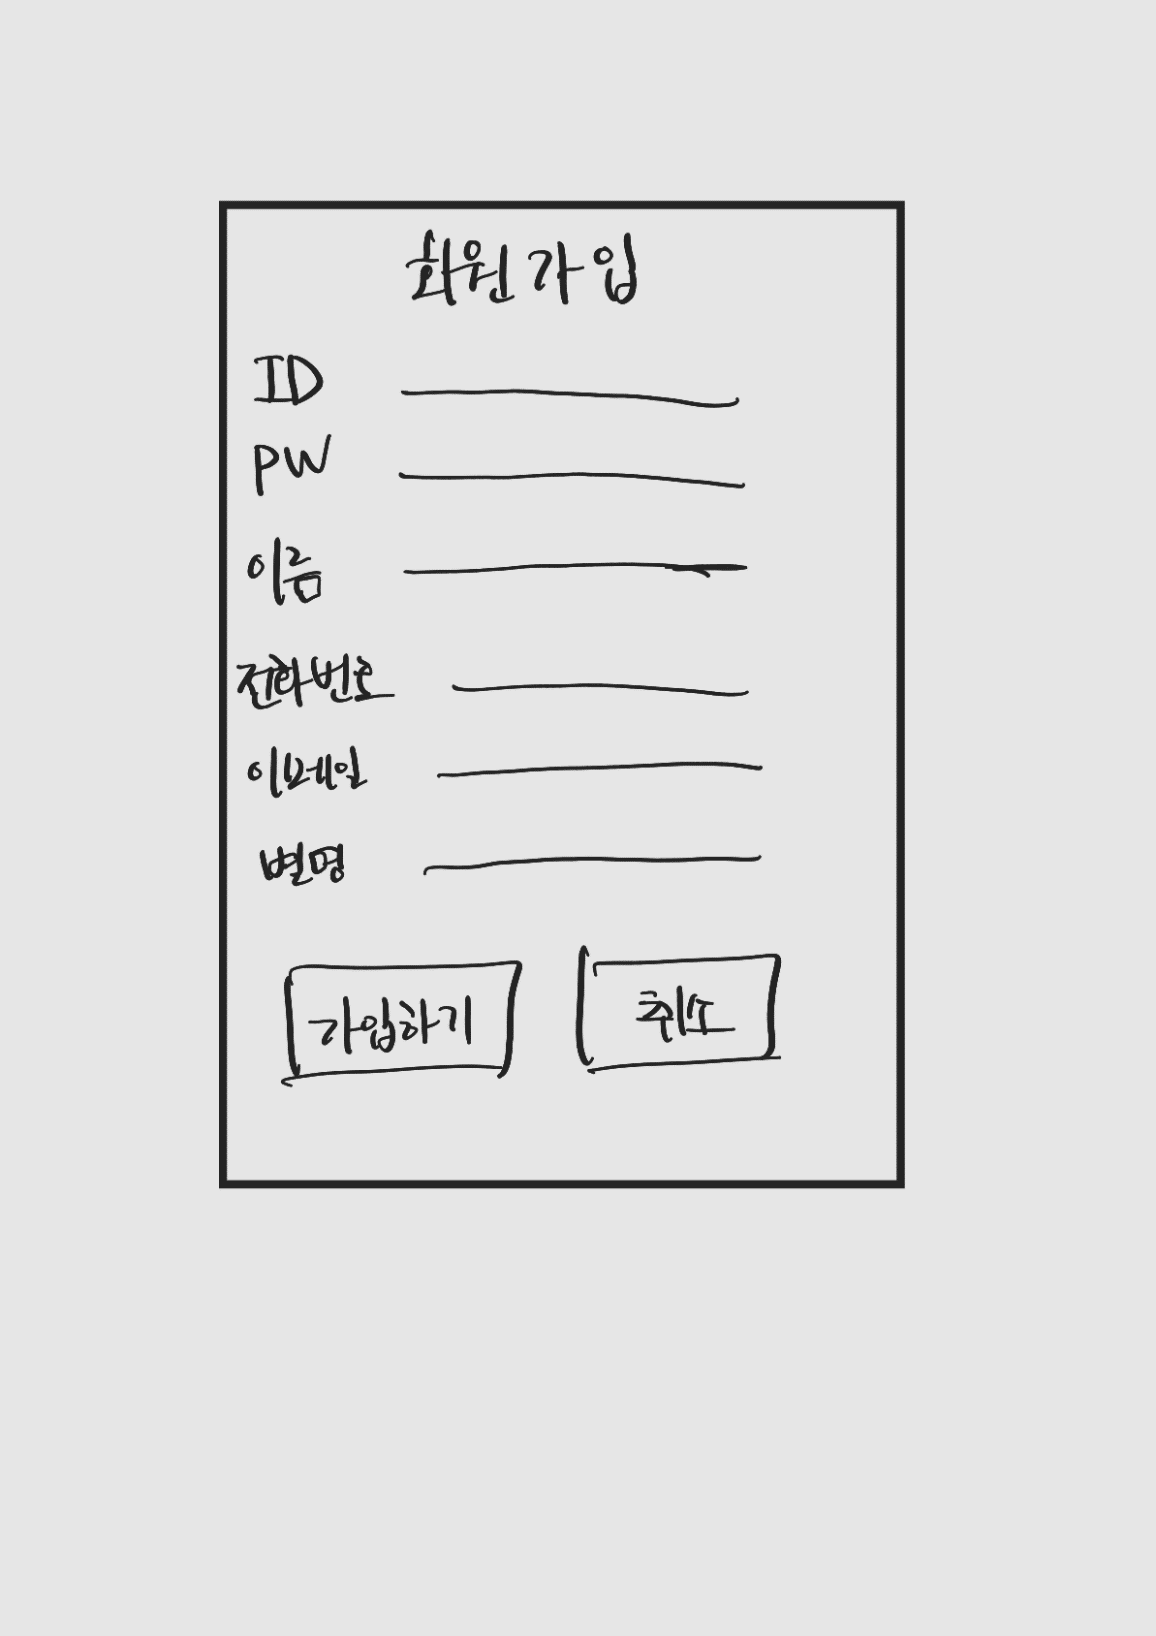 회원가입
ID
PW
이름
전화번호
이메일
별명
가입하기 취소